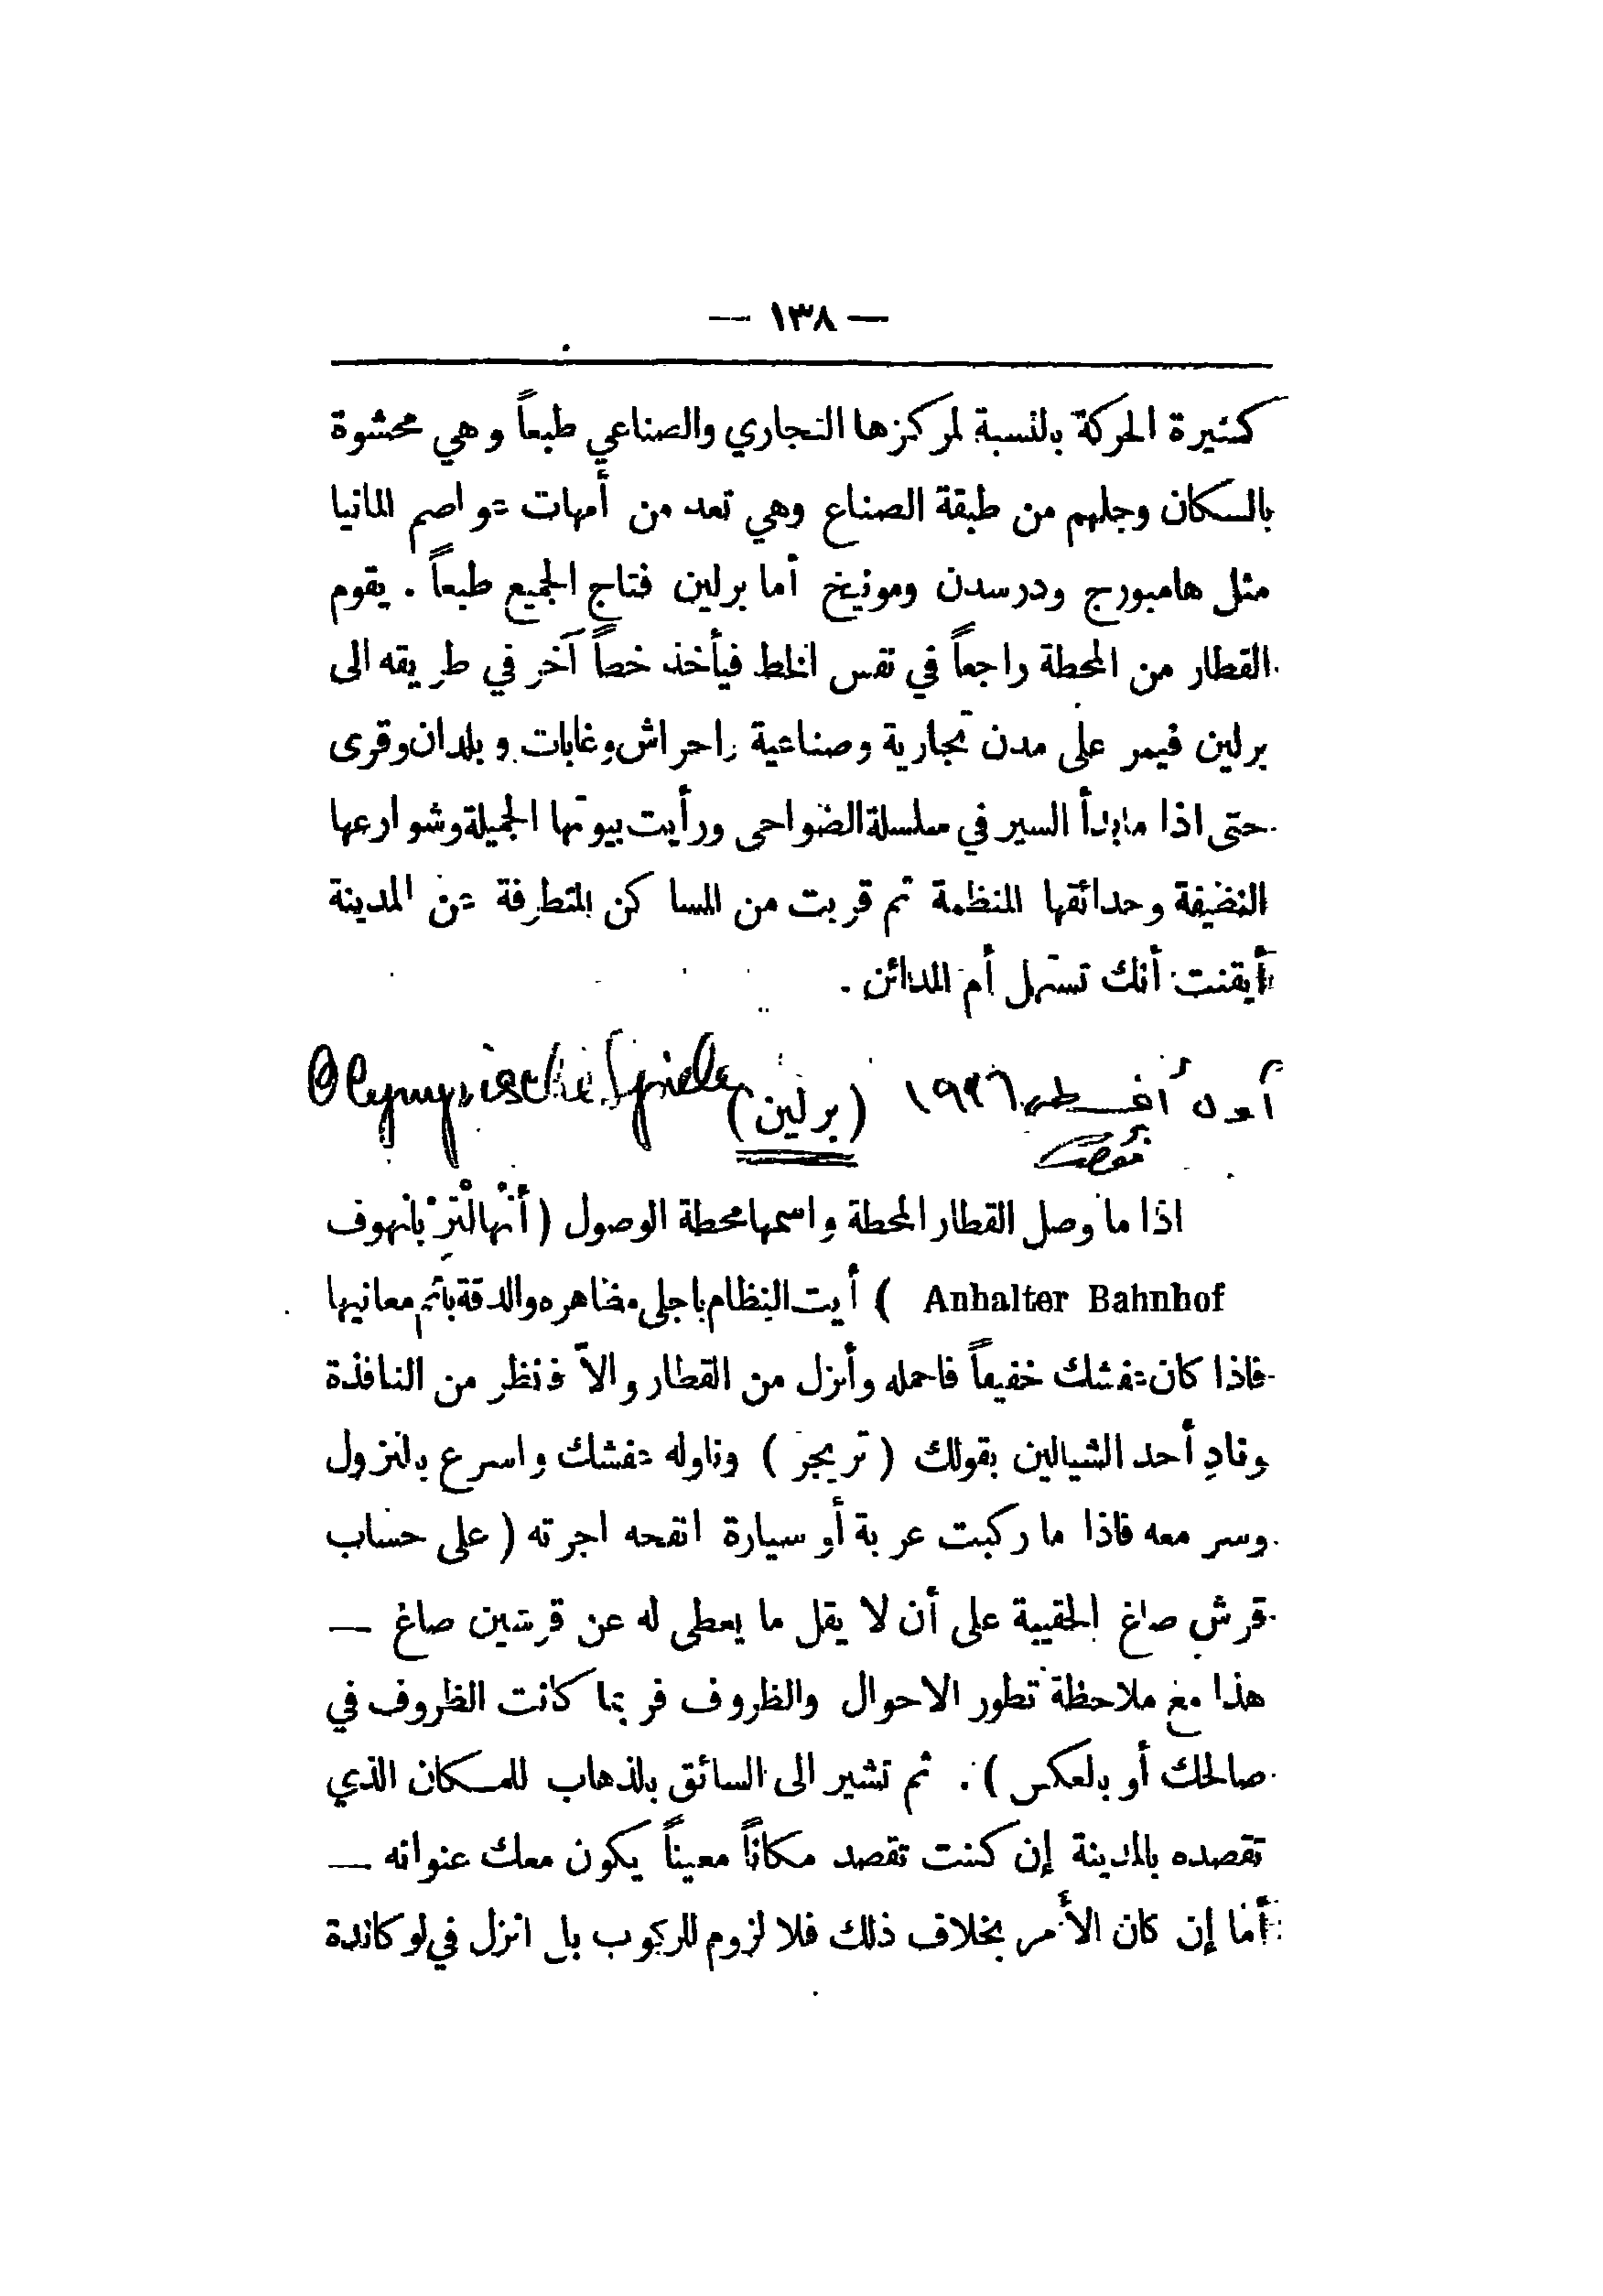 — ١٣٨ —
كثيرة الحركة بالنسبة لمركزها التجاري والصناعي طبعاً وهي محشوة
بالسكان وجلهم من طبقة الصناع وهي تعد من أمهات عواصم المانيا
مثل هامبورج ودرسدن ومونيخ أما برلين فتاج الجميع طبعاً . يقوم
القطار من المحطة راجعاً في نفس الخط فيأخذ خطاً آخر في طريقه الى
برلين فيمر على مدن تجارية وصناعية واحراش وغابات وبلدان وقرى
حتى اذا ما بدأ السير في سلسلة الضواحى ورأيت بيوتها الجميلة وشوارعها
النضيفة وحدائقها المنظمة ثم قربت من المساكن المتطرفة عن المدينة
أيقنت أنك تستهل أم المدائن .
أغسطس ١٩٣٦ (برلين) Olympische Spiele
اذا ما وصل القطار المحطة واسمها محطة الوصول ( أنْهالْتِرْ بانهوف
Anhalter Bahnhof ) أيت النظام باجلى مظاهره والدقة بأتم معانيها
فاذا كان عفشك خفيفاً فاحمله وأنزل من القطار والاّ فنظر من النافذة
ونادِ أحد الشيالين بقولك ( تريجر ) وناوله عفشك واسرع بالنزول
وسر معه فاذا ما ركبت عربة أو سيارة انفحه اجرته ( على حساب
قرش صاغ الحقيبة على أن لا يقل ما يعطى له عن قرشين صاغ —
هذا مع ملاحظة تطور الاحوال والظروف فربما كانت الظروف في
صالحك أو بالعكس ) . ثم تشير الى السائق بالذهاب للمكان الذي
تقصده بالمدينة إن كنت تقصد مكاناً معيناً يكون معك عنوانه —
أما إن كان الأمر بخلاف ذلك فلا لزوم للركوب بل انزل في لوكاندة